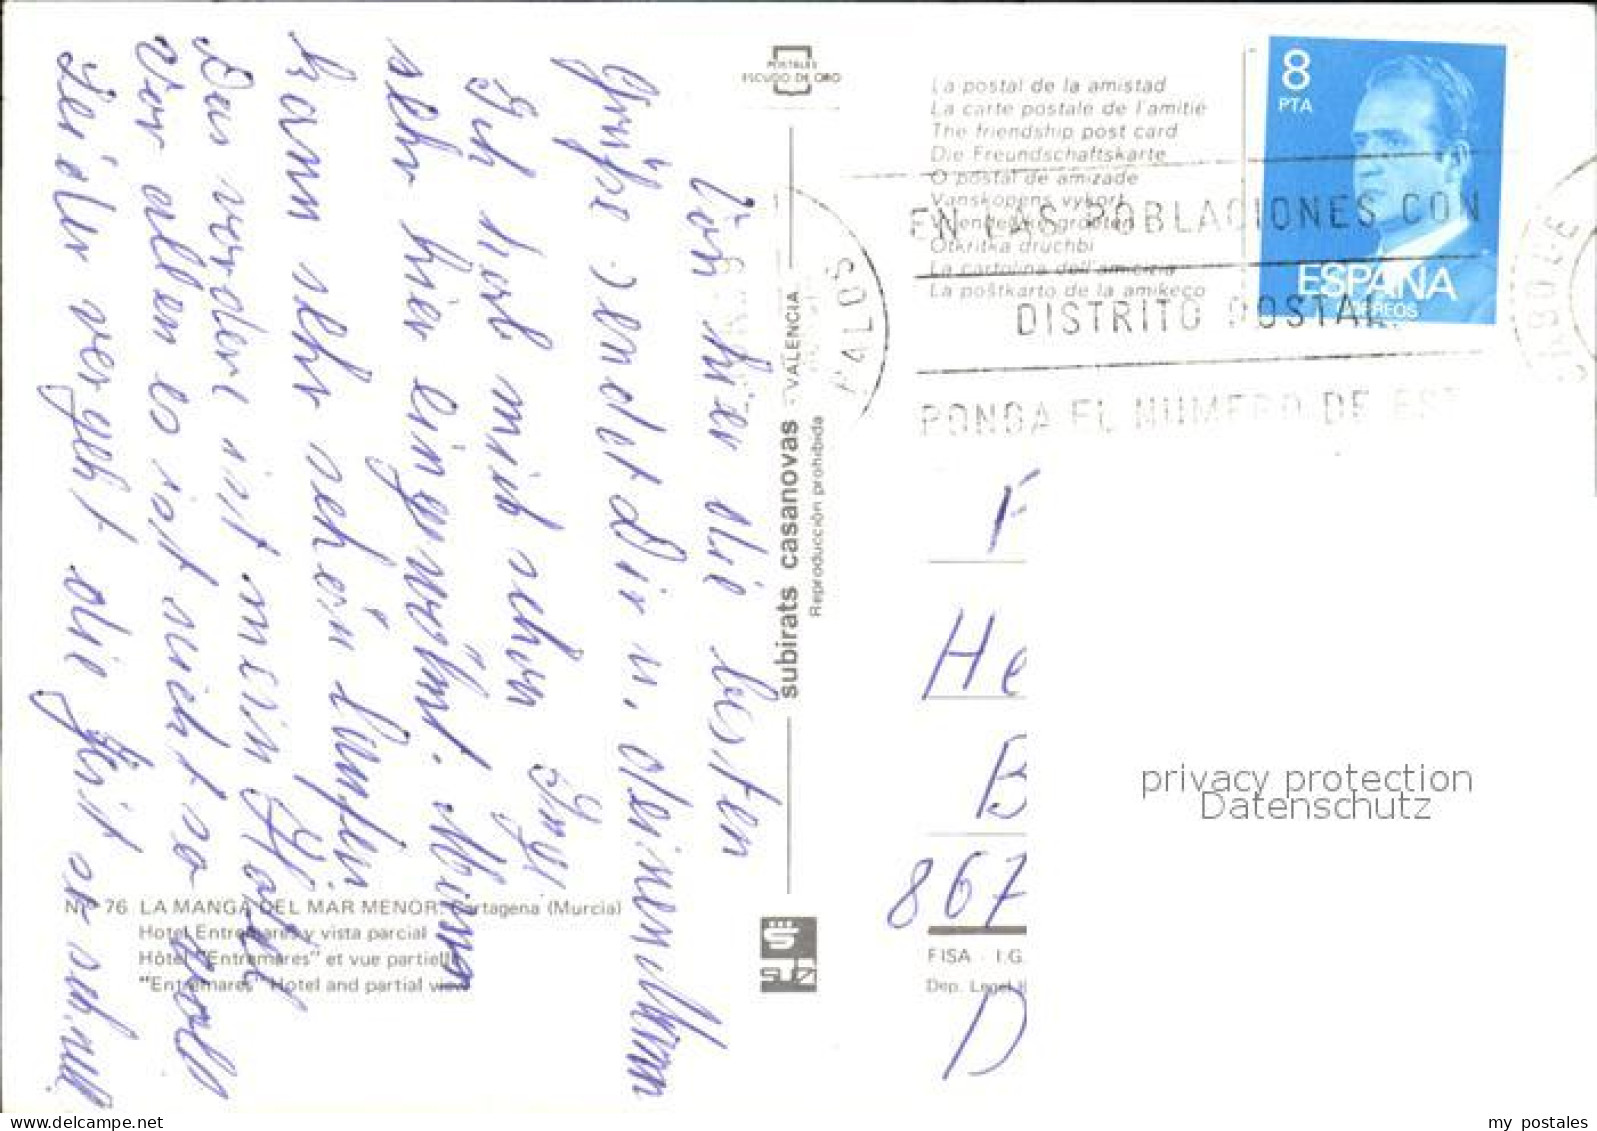 Von hier die besten
Grüße sendet Dir u. deinem Mann
Ich hab mich schon
sehr hier eingewöhnt. Meine
kann sehr schön laufen
Das vordere ist mein Hotel
Vor allem es ist nicht so voll
Leider vergeht die Zeit so schnell
Nº 76 LA MANGA DEL MAR MENOR. Cartagena (Murcia)
Hotel Entremares y vista parcial
Hôtel "Entremares" et vue partielle
"Entremares" Hotel and partial view
POSTALES
ESCUDO DE ORO
subirats casanovas - VALENCIA
Reproducción prohibida
La postal de la amistad
La carte postale de l'amitié
The friendship post card
Die Freundschaftskarte
O postal de amizade
Vanskopens vykort
Vriendelijke groeten
Otkritka druchbi
La cartolina dell'amicizia
La poŝtkarto de la amikeco
8
PTA
ESPAÑA
CORREOS
PALOS
EN LAS POBLACIONES CON
DISTRITO POSTAL
PONGA EL NUMERO DE ES
F
He
B
867
FISA - I.G.
Dep. Legal
D
privacy protection
Datenschutz
www.delcampe.net
my_postales